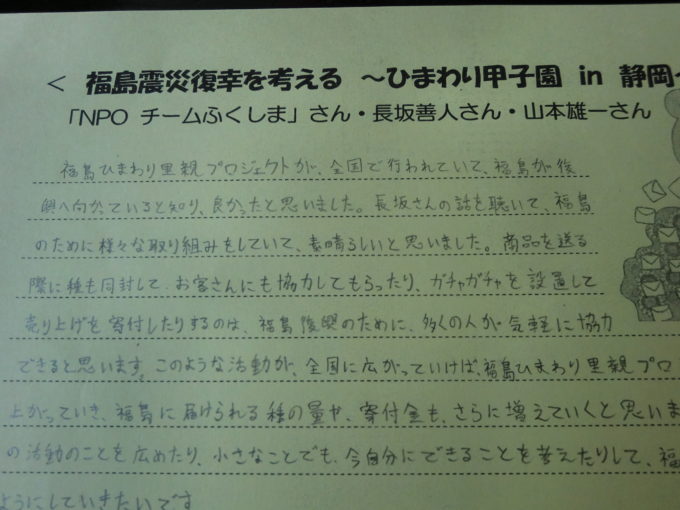 ＜ 福島震災復幸を考える ～ひまわり甲子園 in 静岡～
「NPO チームふくしま」さん・長坂善人さん・山本雄一さん
福島ひまわり里親プロジェクトが、全国で行われていて、福島が復
興へ向かっていると知り、良かったと思いました。長坂さんの話を聴いて、福島
のために様々な取り組みをしていて、素晴らしいと思いました。商品を送る
際に種も同封して、お客さんにも協力してもらったり、ガチャガチャを設置して
売り上げを寄付したりするのは、福島復興のために、多くの人が気軽に協力
できると思います。このような活動が、全国に広がっていけば、福島ひまわり里親プロ
上がっていき、福島に届けられる種の量や、寄付金も、さらに増えていくと思いま
の活動のことを広めたり、小さなことでも、今自分にできることを考えたりして、福
ようにしていきたいです